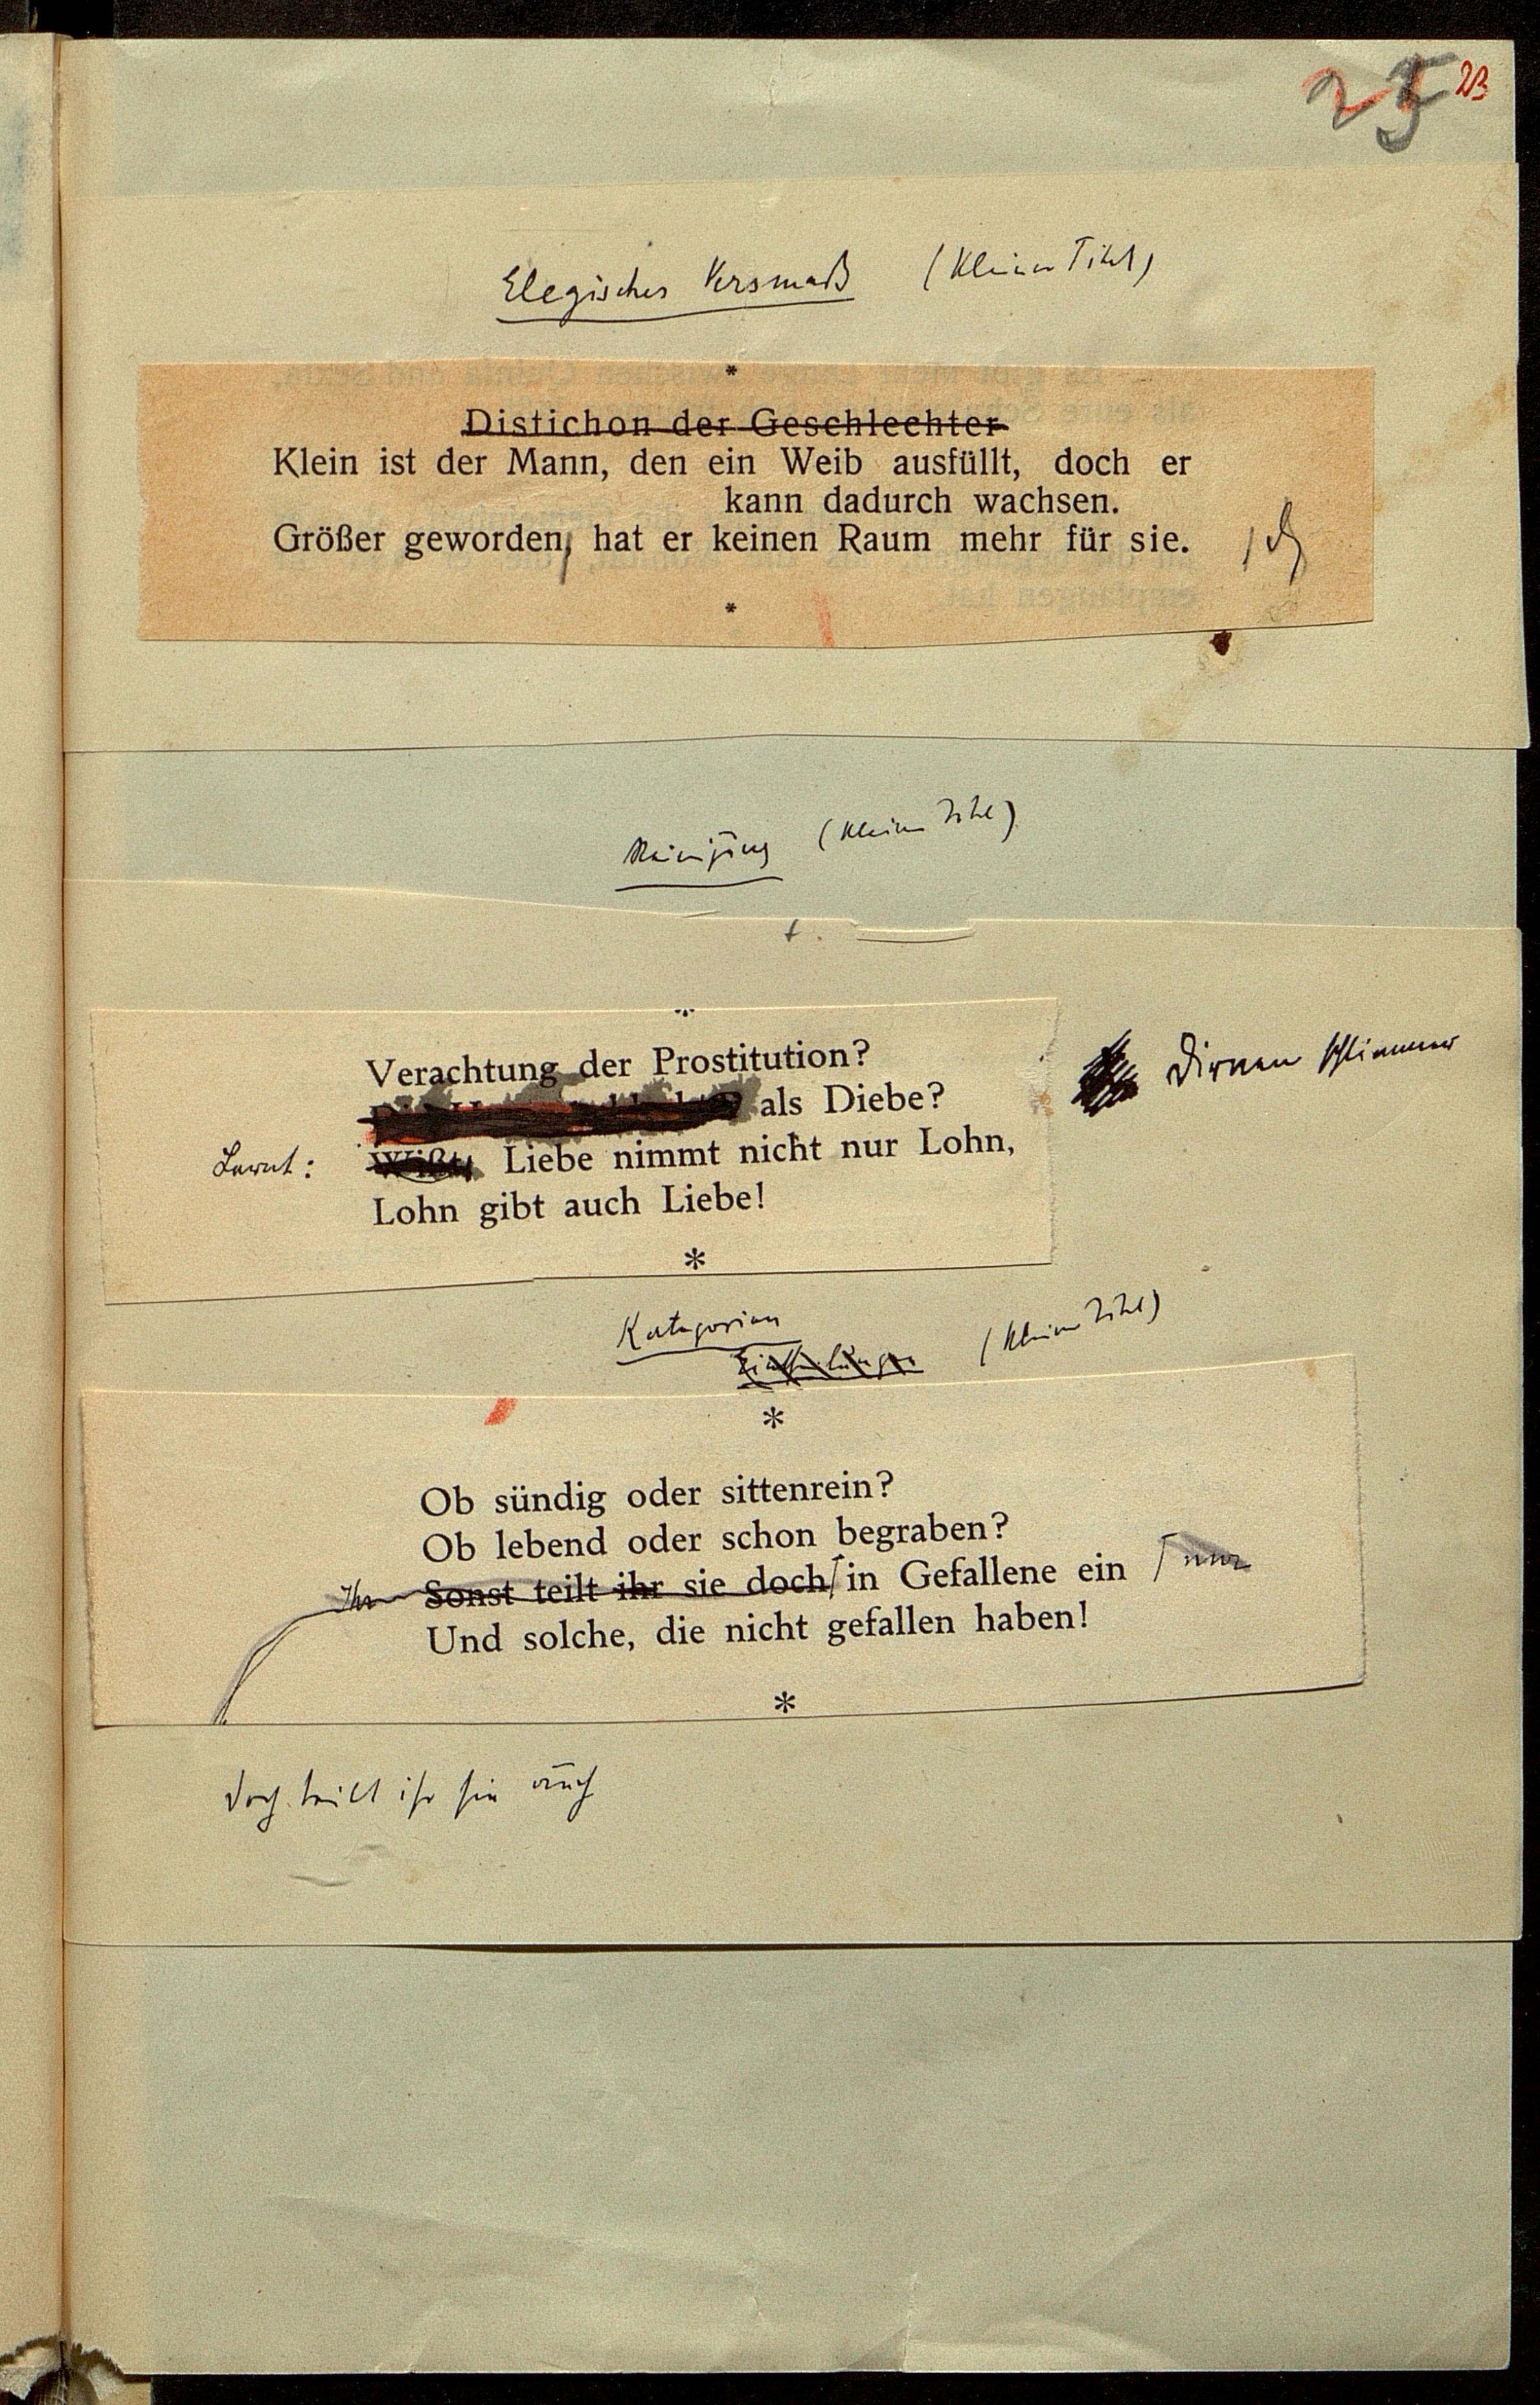 25 23
Elegisches Versmaß (kleiner Titel)
*
Distichon der Geschlechter
Klein ist der Mann, den ein Weib ausfüllt, doch er
kann dadurch wachsen.
Größer geworden, hat er keinen Raum mehr für sie.
*
Reinigung (kleiner Titel)
*
Verachtung der Prostitution?
Dirnen schlimmer
als Diebe?
Lernt: Wißt, Liebe nimmt nicht nur Lohn,
Lohn gibt auch Liebe!
*
Kategorien
Einteilungen (kleiner Titel)
*
Ob sündig oder sittenrein?
Ob lebend oder schon begraben?
Ihr Sonst teilt ihr sie doch in Gefallene ein nur
Und solche, die nicht gefallen haben!
*
doch teilt ihr sie auch